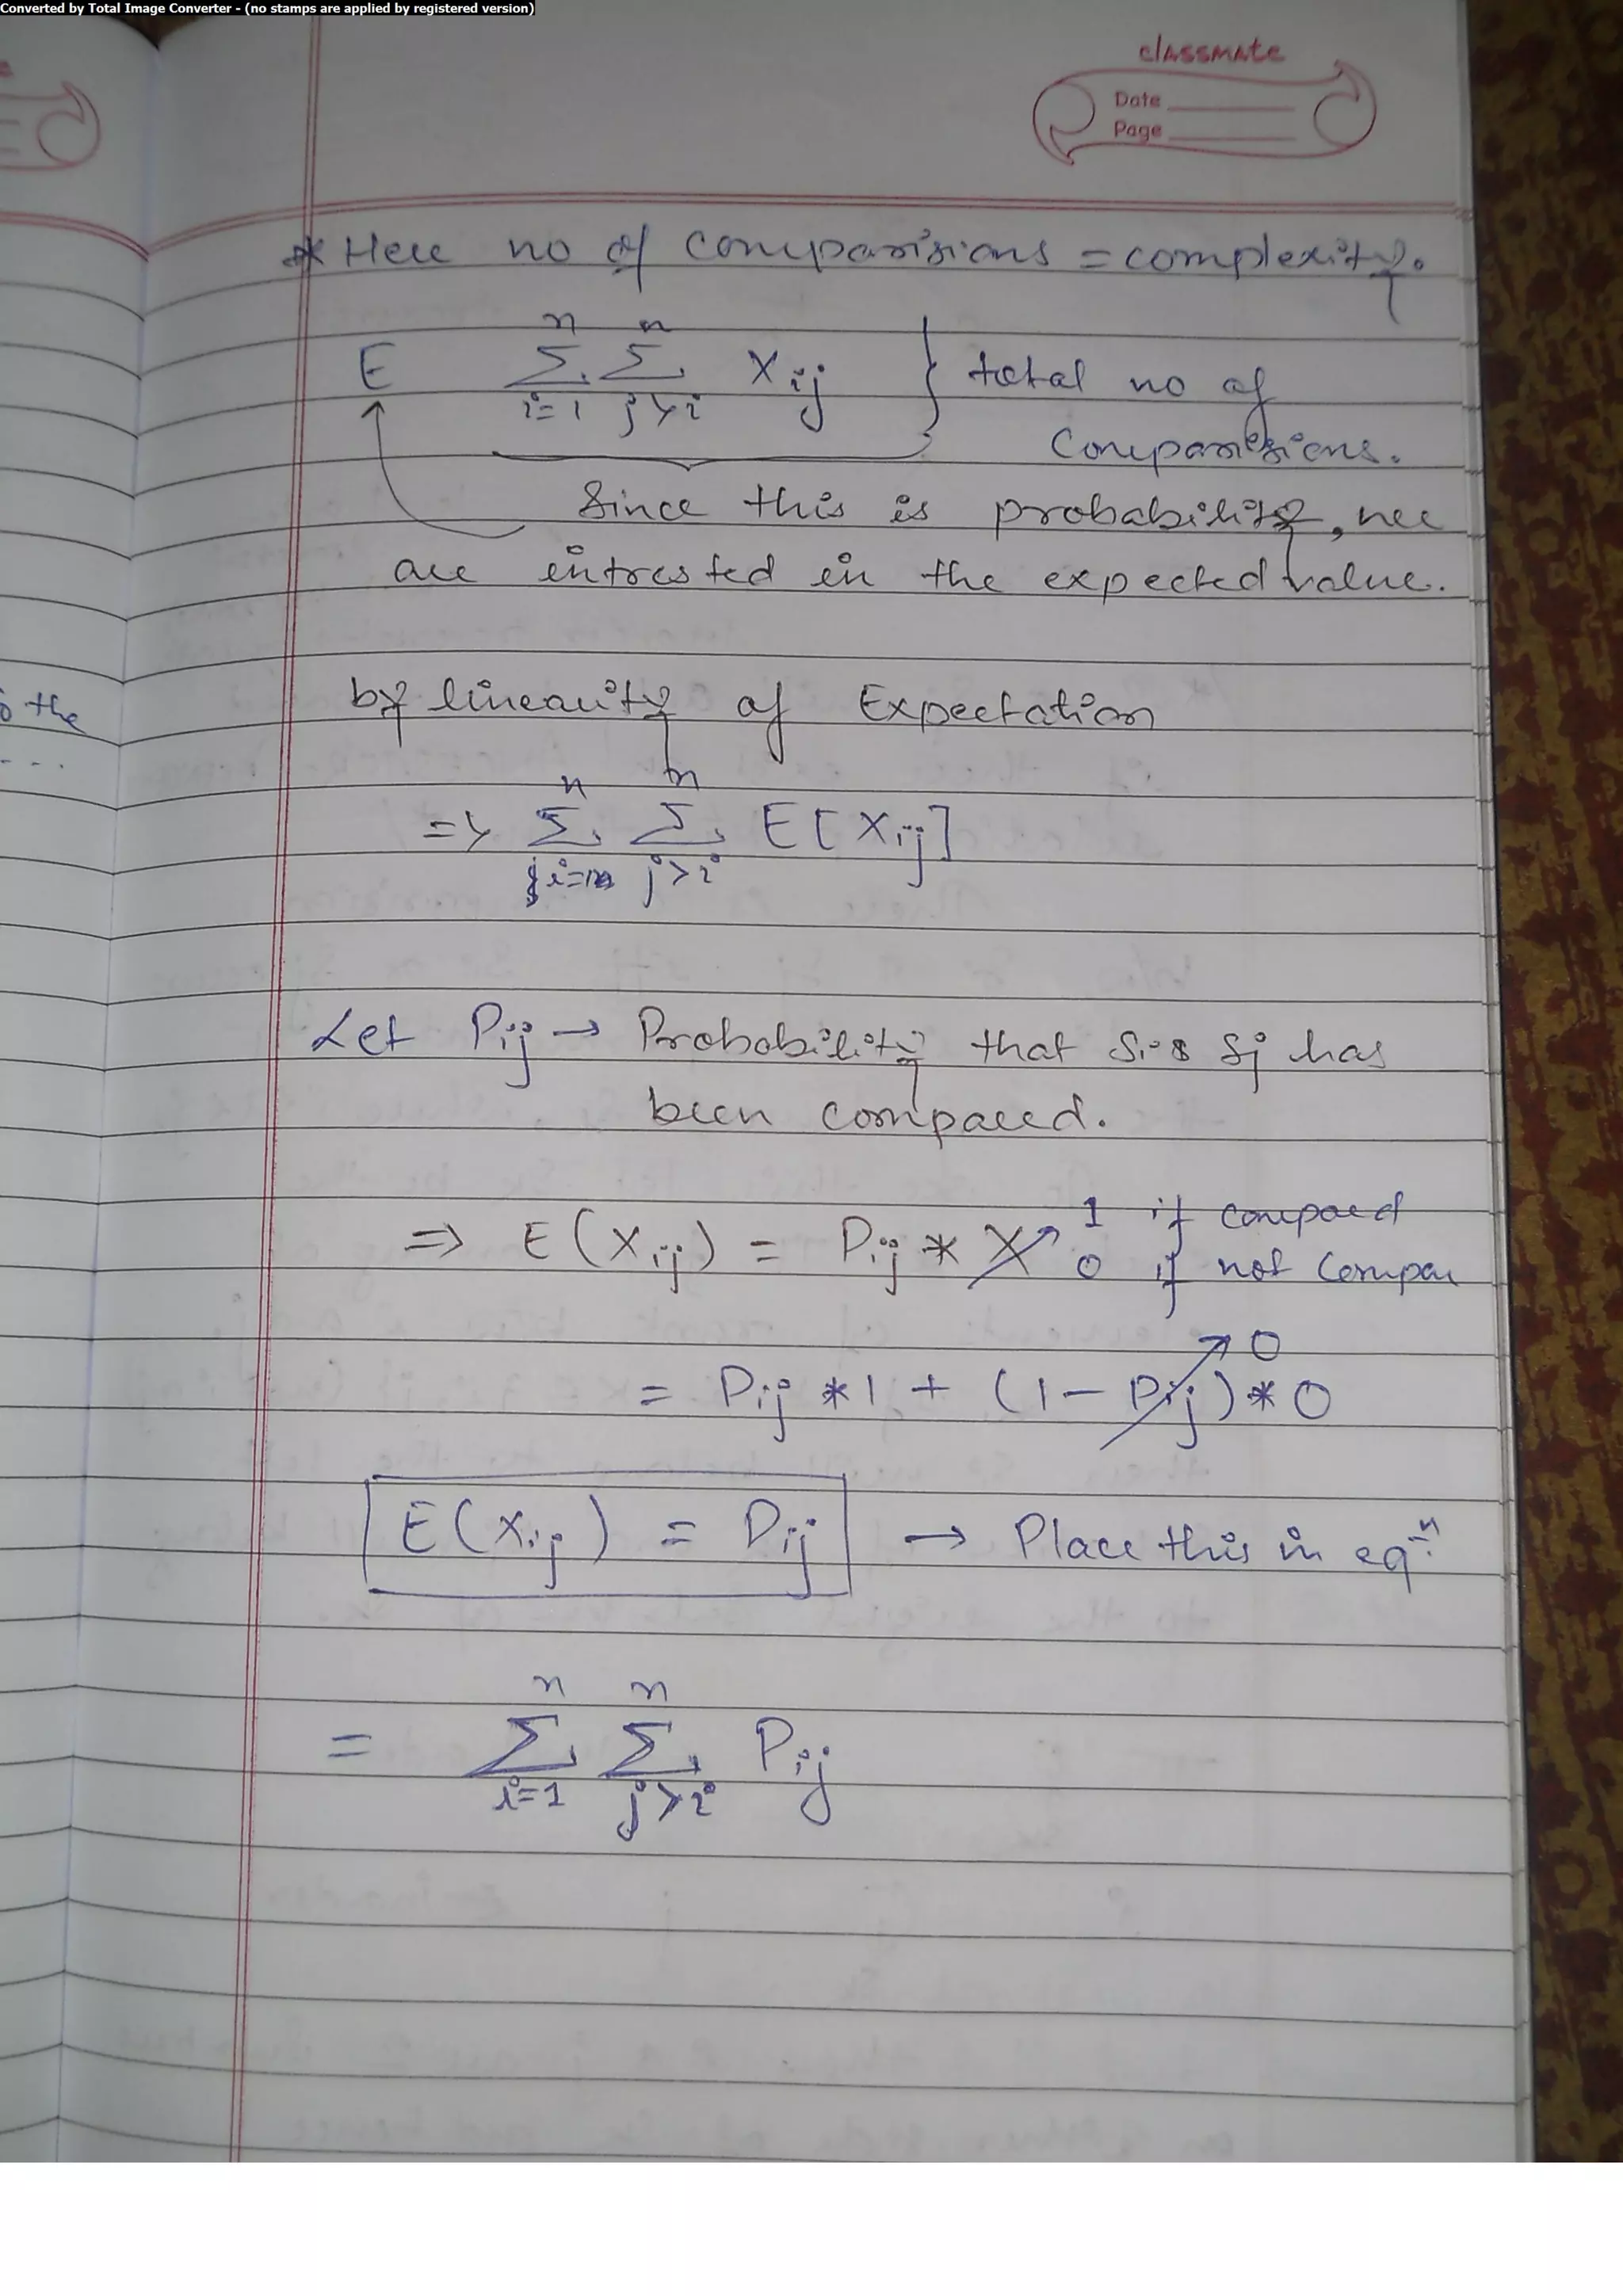 Converted by Total Image Converter - (no stamps are applied by registered version)
classmate
Date
Page
* Here no of comparisions = complexity.
n n
E Σ Σ Xij } total no of
i=1 j>i
Comparisions.
Since this is probability, we
are intrested in the expected value.
o the
by linearity of Expectation
...
n n
=> Σ Σ E[Xij]
i=1 j>i
Let Pij → Probability that Si & Sj has
been compared.
1 if compared
=> E(Xij) = Pij * X
0 if not Compar
0
= Pij *1 + (1 - Pij) * 0
E(Xij) = Pij → Place this in eqn
n n
= Σ Σ Pij
i=1 j>i